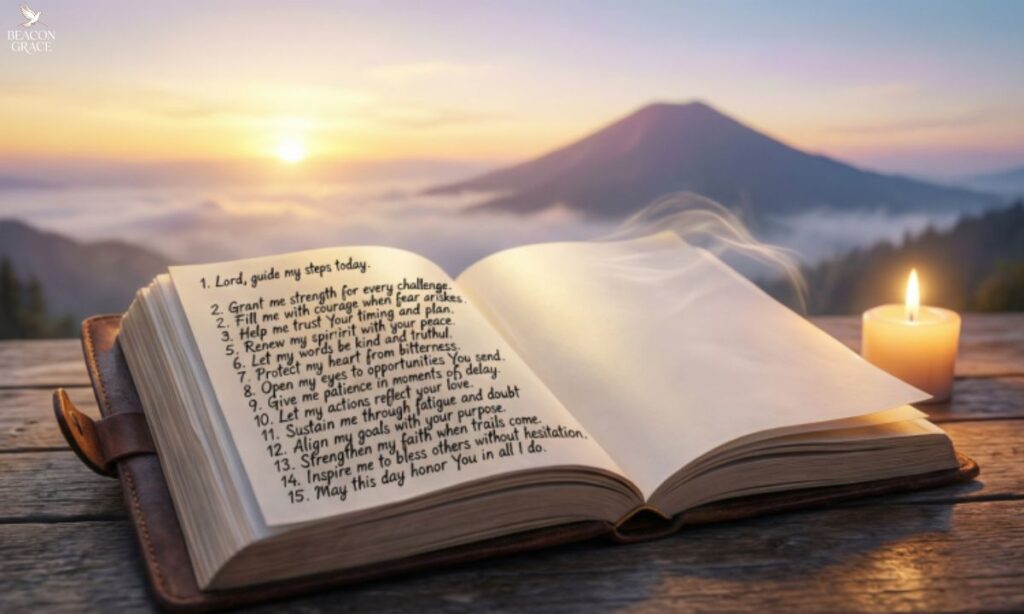 BEACON
GRACE
1. Lord, guide my steps today.
2. Grant me strength for every challenge.
2. Fill me with courage when fear ariskes.
3. Help me trust Your timing and plan.
5. Renew my spririrt with your peace.
6. Let my words be kind and truthul.
7. Protect my heart from bitterness.
8. Open my eyes to opportunities You send.
9. Give me patience in moments of delay.
10. Let my actions reflect your love.
11. Sustain me through fatigue and doubt
12. Align my goals with your purpose.
13. Strengthen my faith when trails come.
14. Inspire me to bless others without hesitation.
15. May this day honor You in all I do.